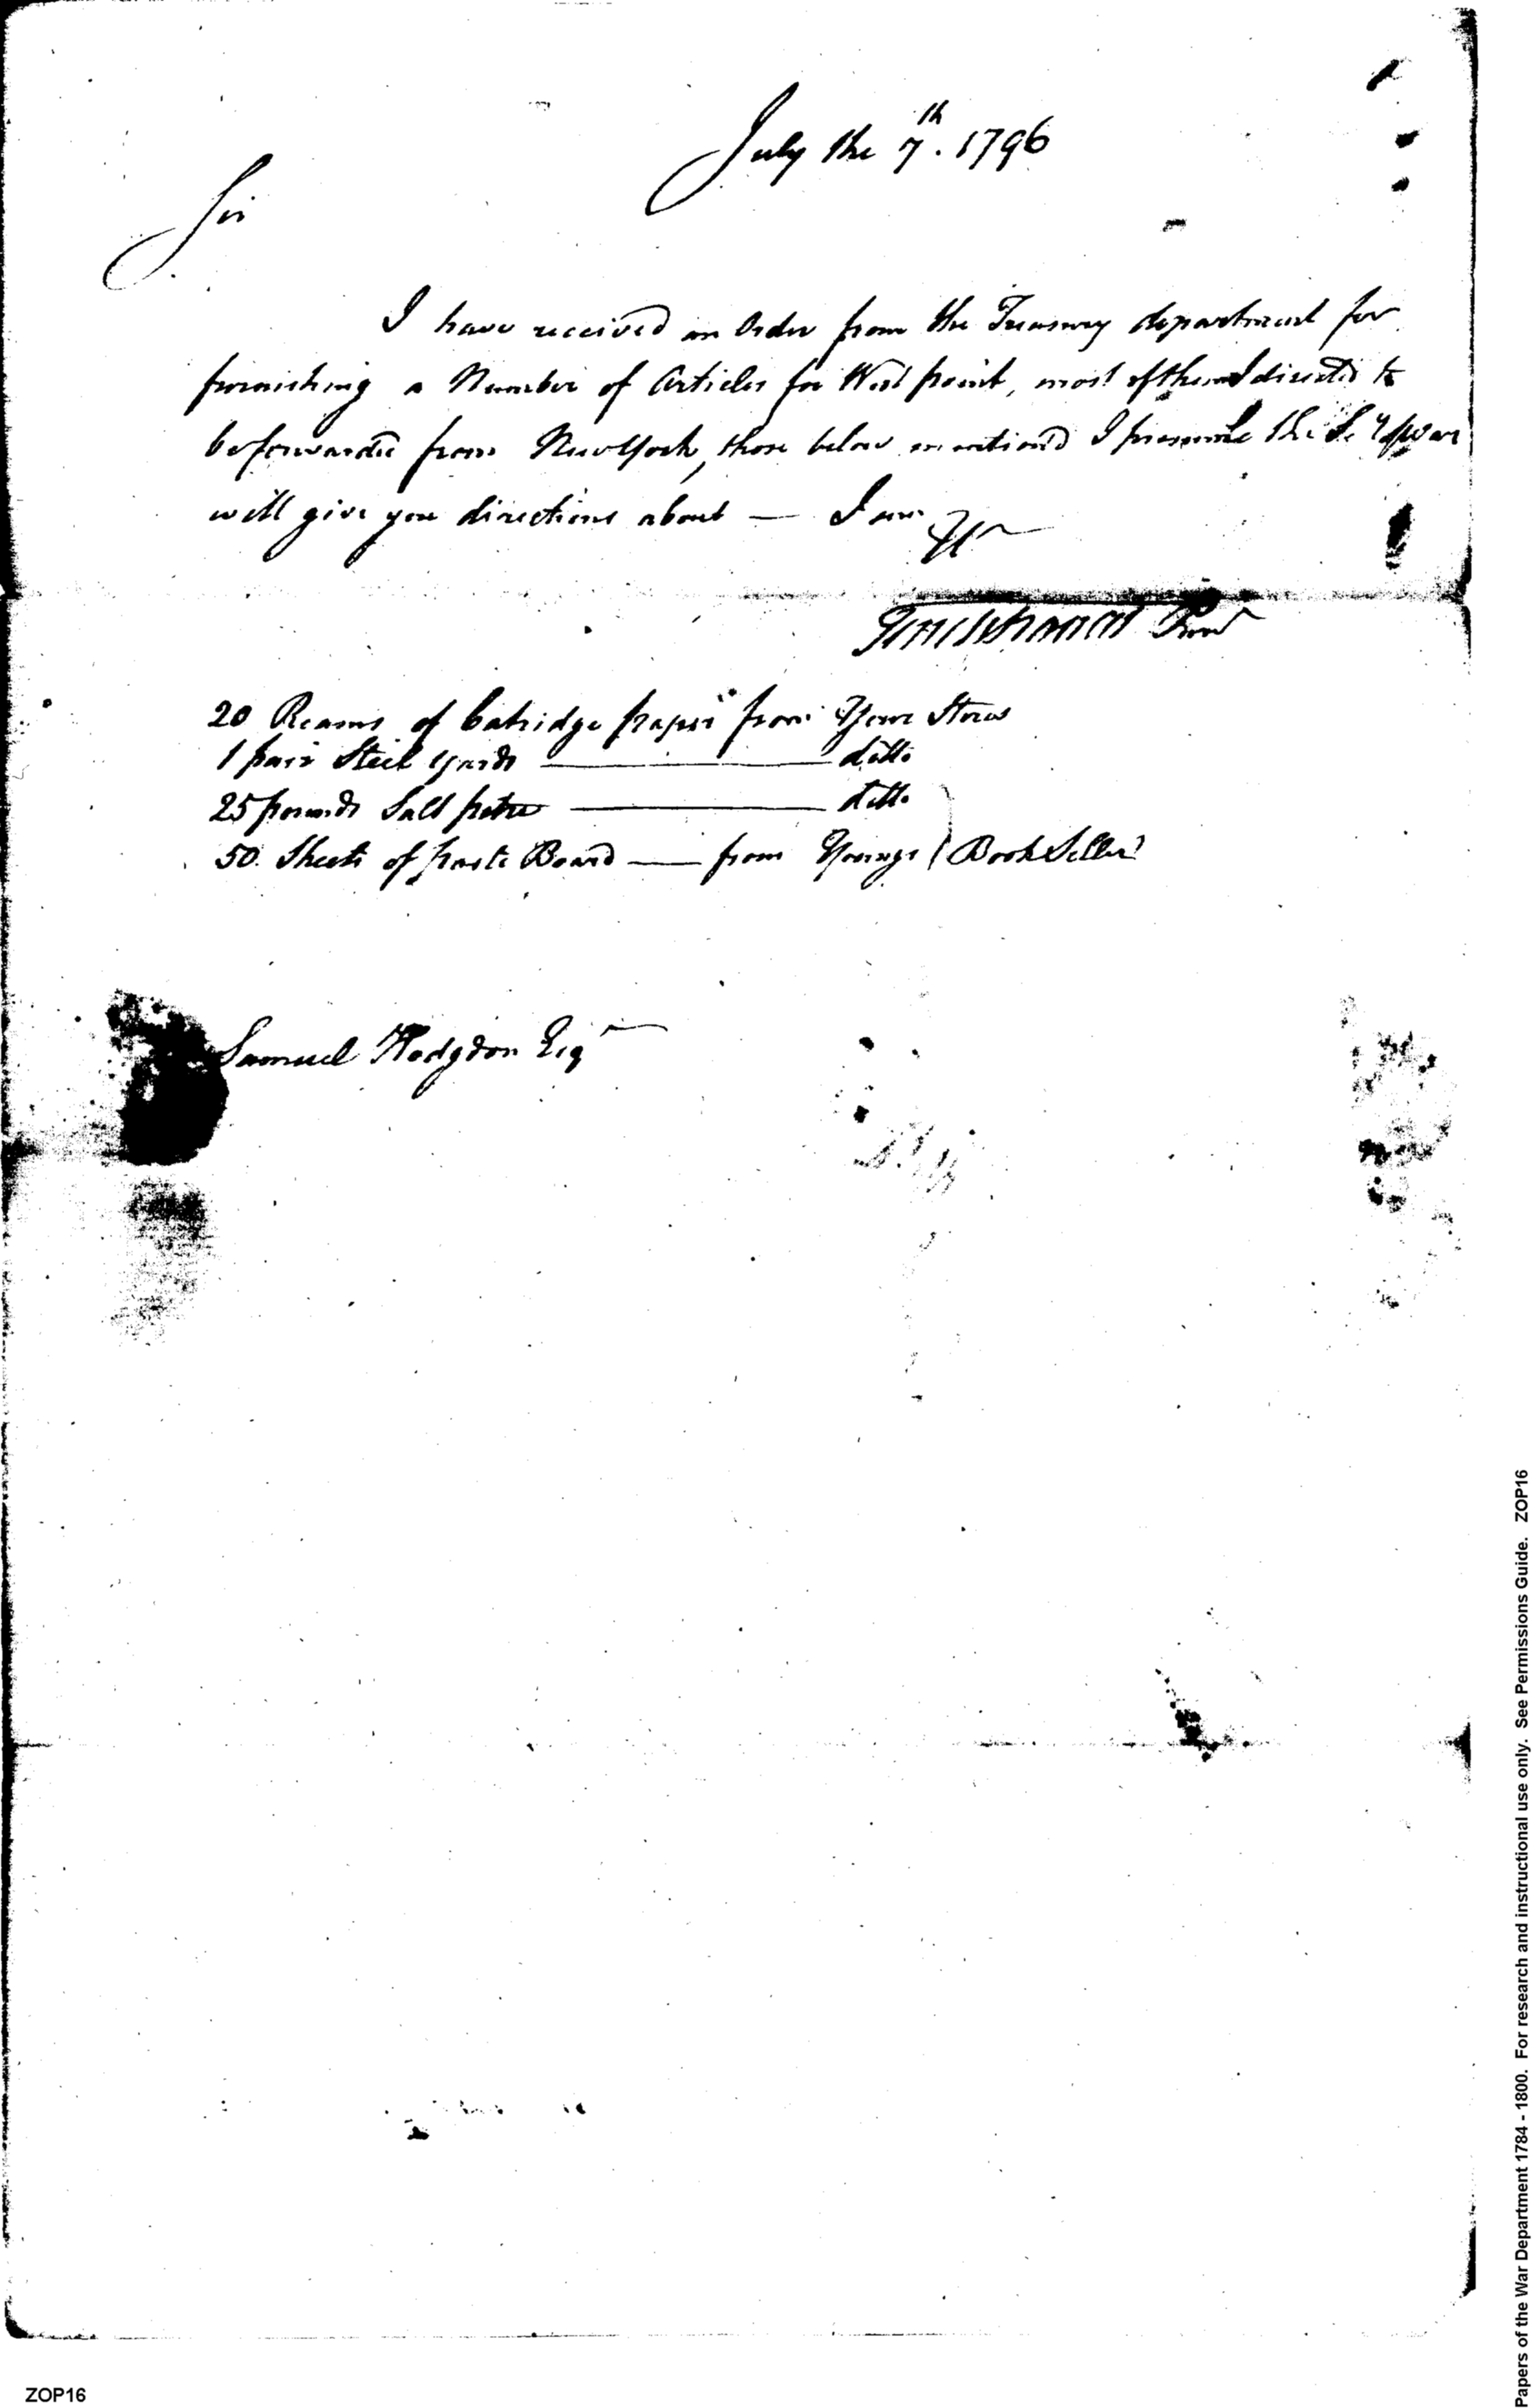 July the 7th. 1796
Sir
I have received an Order from the Treasury department for
furnishing a Number of Articles for West point, most of them directed to
be forwarded from NewYork, those below mentiond I presume the Secy of War
will give you directions about — I am
Tench Francis Purvr
20 Reams of Catridge paper from Your Stores
1 pair Steel yards — ditto
25 pounds Salt petre — ditto
50. Sheets of paste Board — from Youngs (Book Seller)
Samuel Hodgdon Esqr
Papers of the War Department 1784 - 1800. For research and instructional use only. See Permissions Guide. ZOP16
ZOP16